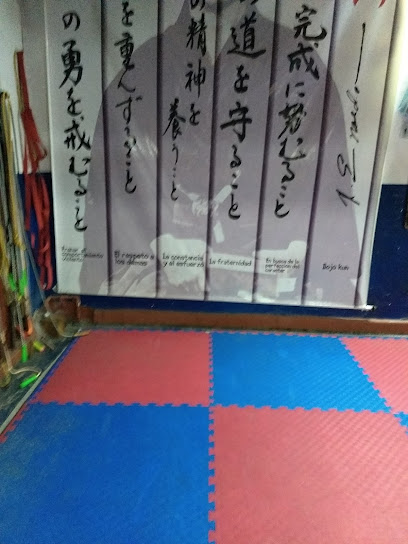 完成に努むること
の道を守ること
の精神を養うこと
を重んずること
の勇を戒むること
comportamiento
violento
El respeto a
los demas
La constancia
y el esfuerzo
La fraternidad
En busca de la
perfeccion del
caracter
Dojo kun